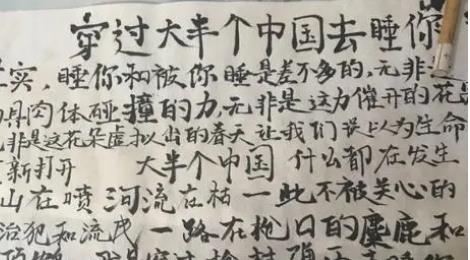 穿过大半个中国去睡你
实，睡你和被你睡是差不多的，无非
具肉体碰撞的力，无非是这力催开的花
非是这花朵虚拟出的春天让我们误以为生命
新打开 大半个中国 什么都在发生
山在喷 河流在枯 一些不被关心的
治犯和流民 一路在枪口的麋鹿和